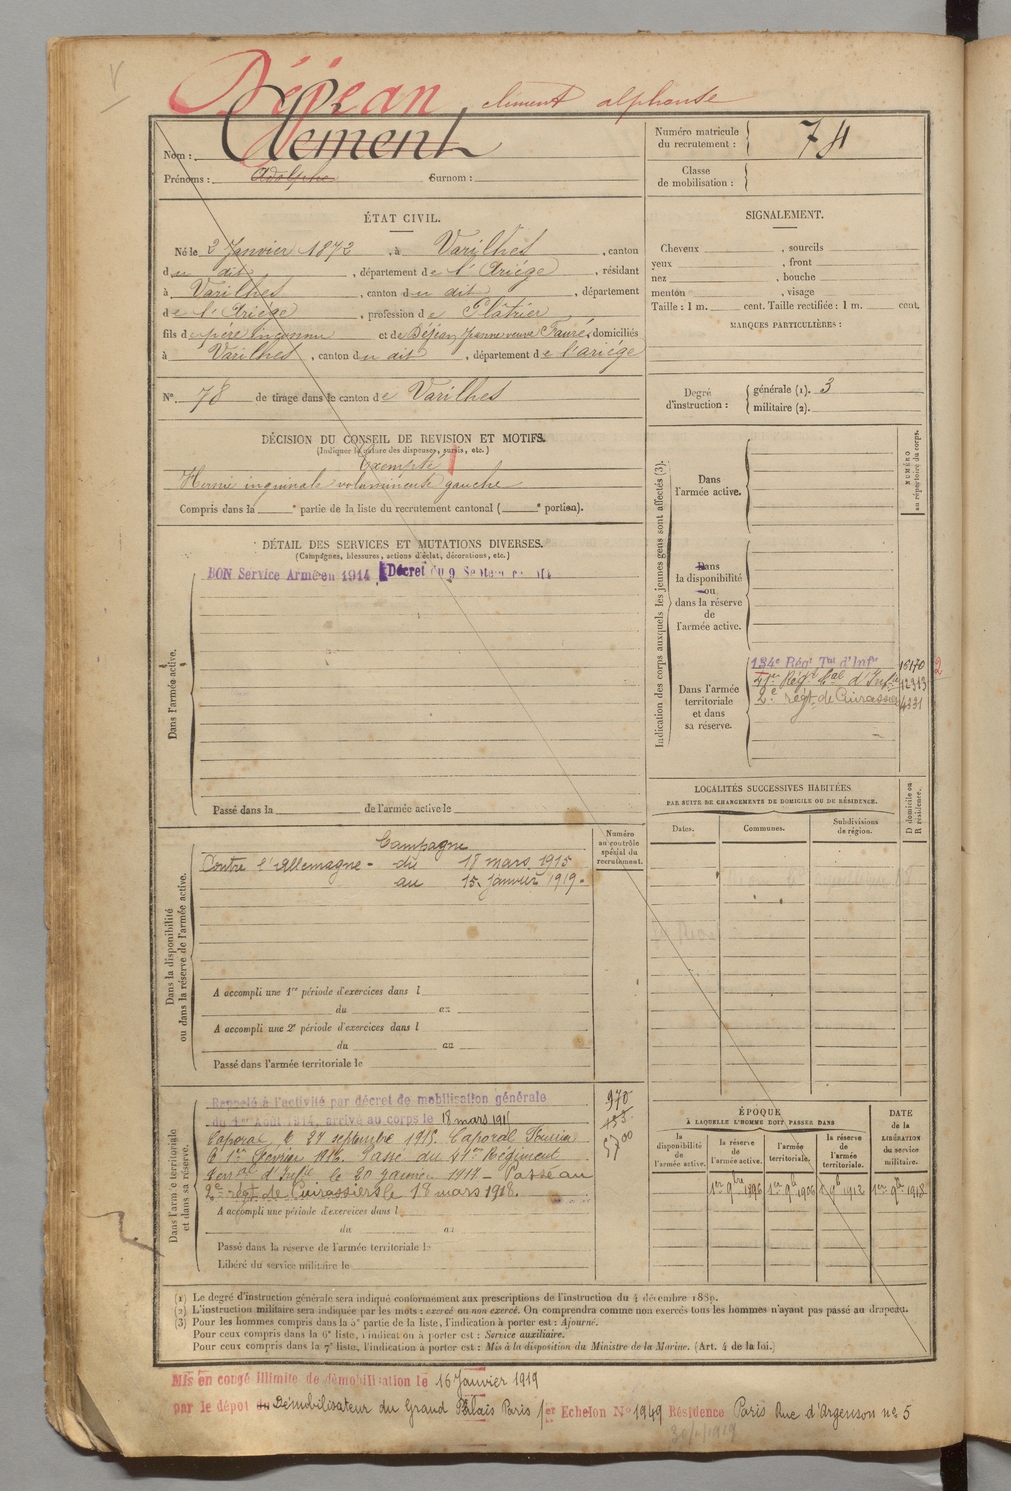 Déjean clément alphonse
Clément
Nom :
Prénoms : Adolphe Surnom :
Numéro matricule du recrutement : 74
Classe de mobilisation :
ÉTAT CIVIL.
Né le 2 Janvier 1872, à Varilhes, canton
du dit, département de l'Ariége, résidant
à Varilhes, canton du dit, département
de l'Ariége, profession de Plâtrier
fils de père inconnu et de Déjean Jeanne veuve Fauré, domiciliés
à Varilhes, canton du dit, département de l'ariége
N° 78 de tirage dans le canton de Varilhes
SIGNALEMENT.
Cheveux , sourcils
yeux , front
nez , bouche
menton , visage
Taille : 1 m. cent. Taille rectifiée : 1 m. cent.
MARQUES PARTICULIÈRES :
Degré d'instruction : générale (1). 3
militaire (2).
DÉCISION DU CONSEIL DE REVISION ET MOTIFS.
(Indiquer la nature des dispenses, sursis, etc.)
Exempté
Hernie inguinale volumineuse gauche
Compris dans la e partie de la liste du recrutement cantonal ( e portion).
DÉTAIL DES SERVICES ET MUTATIONS DIVERSES.
(Campagnes, blessures, actions d'éclat, décorations, etc.)
BON Service Armé en 1914 Décret du 9 Septembre
Dans l'armée active.
Passé dans la de l'armée active le
Indication des corps auxquels les jeunes gens sont affectés (3).
NUMÉRO au répertoire du corps.
Dans l'armée active.
Dans la disponibilité ou dans la réserve de l'armée active.
Dans l'armée territoriale et dans sa réserve.
134e Régt Tal d'Infie 15170
Régt d'Infie 12313
2e régt de Cuirassiers 4331
2
LOCALITÉS SUCCESSIVES HABITÉES
PAR SUITE DE CHANGEMENTS DE DOMICILE OU DE RÉSIDENCE.
Dates. Communes. Subdivisions de région. D domicile ou R résidence.
Numéro au contrôle spécial du recrutement.
Dans la disponibilité ou dans la réserve de l'armée active.
Campagne
Contre l'Allemagne - du 18 mars 1915
au 15 Janvier 1919.
A accompli une 1re période d'exercices dans l
du au
A accompli une 2e période d'exercices dans l
du au
Passé dans l'armée territoriale le
Dans l'armée territoriale et dans sa réserve.
Rappelé à l'activité par décret de mobilisation générale
du 1er Août 1914, arrivé au corps le 18 mars 1915
Caporal le 27 septembre 1915. Caporal Fourrier
le 1er Février 1916. Passé au Régiment
d'Infie le 20 janvier 1917 - Passé au
2e régt de Cuirassiers le 18 mars 1918.
970
A accompli une période d'exercices dans l
du au
Passé dans la réserve de l'armée territoriale le
Libéré du service militaire le
ÉPOQUE
À LAQUELLE L'HOMME DOIT PASSER DANS
la disponibilité de l'armée active. la réserve de l'armée active. l'armée territoriale. la réserve de l'armée territoriale.
DATE de la LIBÉRATION du service militaire.
1er 9bre 1896 1er 9b 1906 1er 9b 1912 1er 9b 1918
(1) Le degré d'instruction générale sera indiqué conformément aux prescriptions de l'instruction du 4 décembre 1889.
(2) L'instruction militaire sera indiquée par les mots : exercé ou non exercé. On comprendra comme non exercés tous les hommes n'ayant pas passé au drapeau.
(3) Pour les hommes compris dans la 5e partie de la liste, l'indication à porter est : Ajourné.
Pour ceux compris dans la 6e liste, l'indication à porter est : Service auxiliaire.
Pour ceux compris dans la 7e liste, l'indication à porter est : Mis à la disposition du Ministre de la Marine. (Art. 4 de la loi.)
Mis en congé illimité de démobilisation le 16 Janvier 1919
par le dépôt du Démobilisateur du Grand Palais Paris 1er Echelon N° 1949 Résidence Paris Rue d'Argenson n° 5